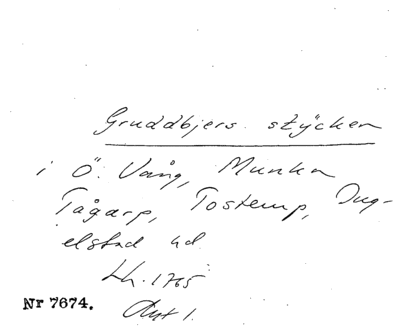 Gruddbjers stycken
i Ö. Vång, Munka
Tågarp, Tostemp, Ing-
elstad hd
Lh. 1765
Akt 1.
Nr 7674.